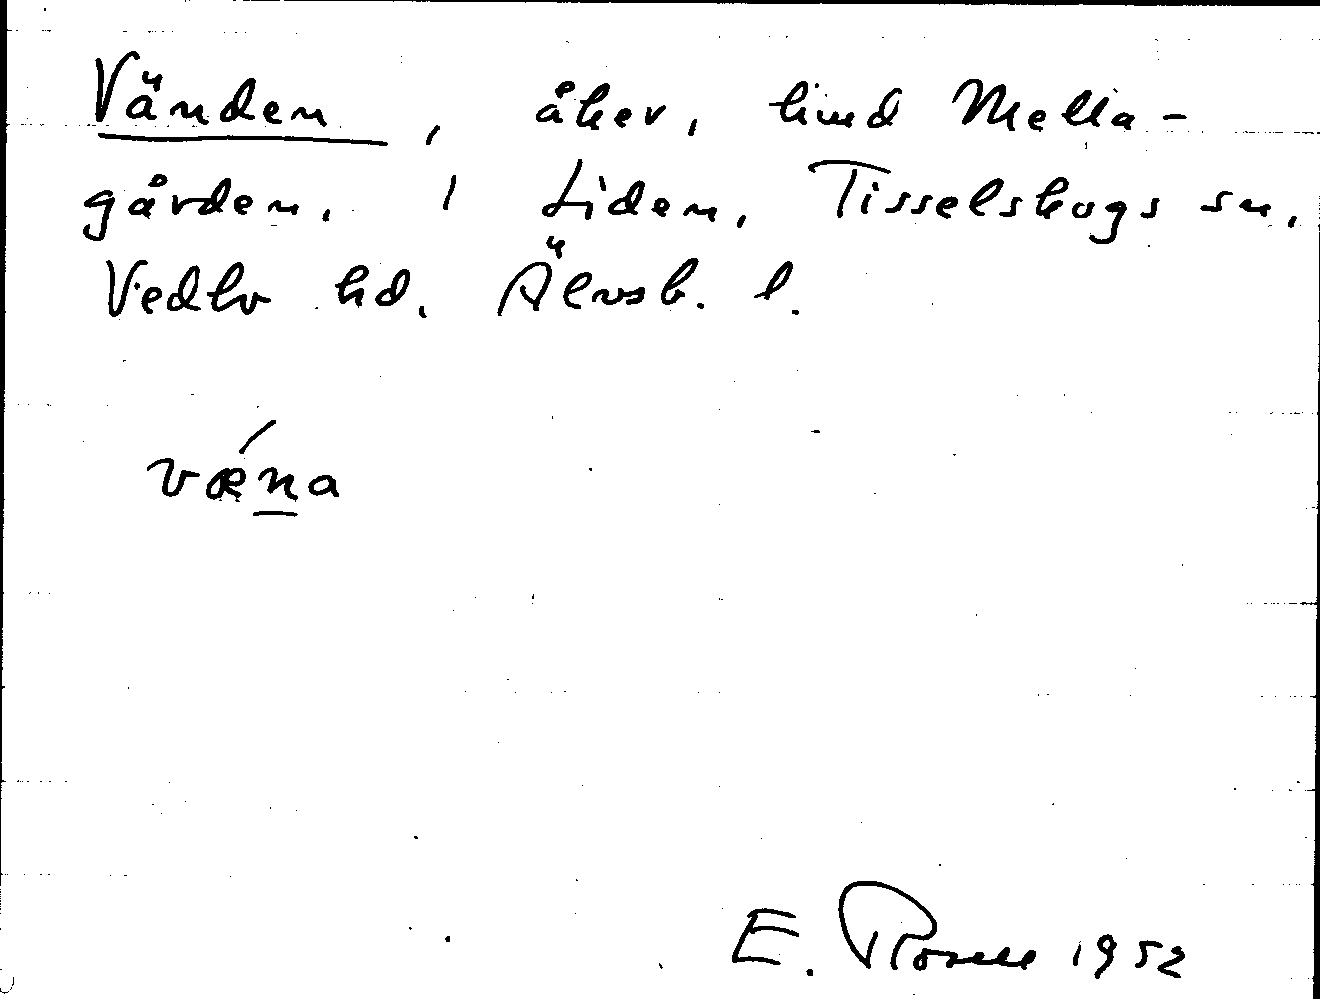 Vänden, åker, hmd Mella-
gården, 1 Liden, Tisselskogs sn,
Vedbo hd. Älvsb. l.
væ´na
E. Rosell 1952